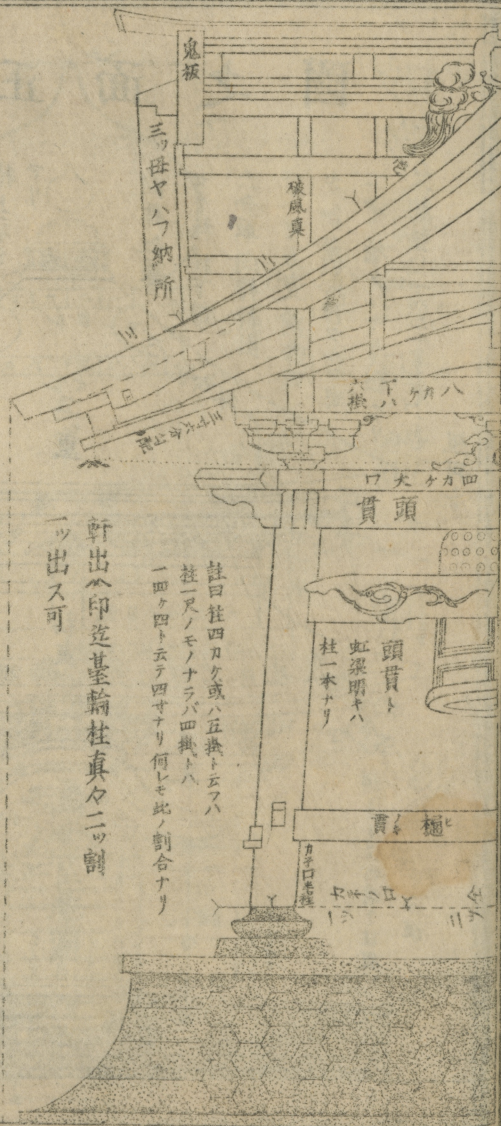 鬼板
三ッ母ヤハフ納所
破風真
八カケ
下ハ
六掛
四カケ大ワ
頭貫
頭貫ト
虹梁明キハ
柱一本ナリ
註曰柱四カケ或ハ五掛ト云フハ
柱一尺ノモノナラバ四掛トハ
一四ヶ四ト云テ四寸ナリ何レモ此ノ割合ナリ
軒出〆印迄基輪柱真々二ッ割
一ッ出ス可
樋貫